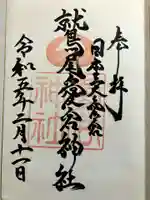 奉拝
日本三大愛宕
鷲尾愛宕神社
令和五年二月十一日